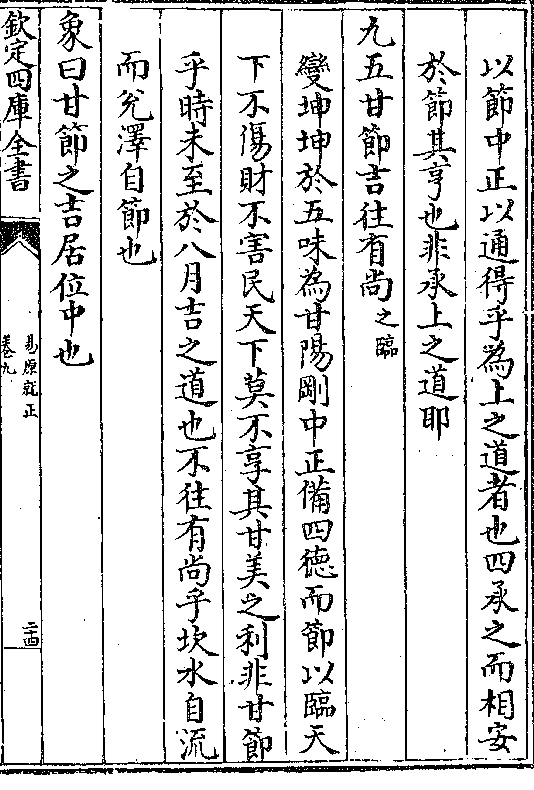 以節中正以通得乎為上之道者也四承之而相安
於節其亨也非承上之道耶
九五甘節吉往有尚之臨
變坤坤於五味為甘陽剛中正備四德而節以臨天
下不傷財不害民天下莫不享其甘美之利非甘節
乎時未至於八月吉之道也不往有尚乎坎水自流
而兊澤自節也
象曰甘節之吉居位中也
欽定四庫全書
易原就正
卷九
二十四